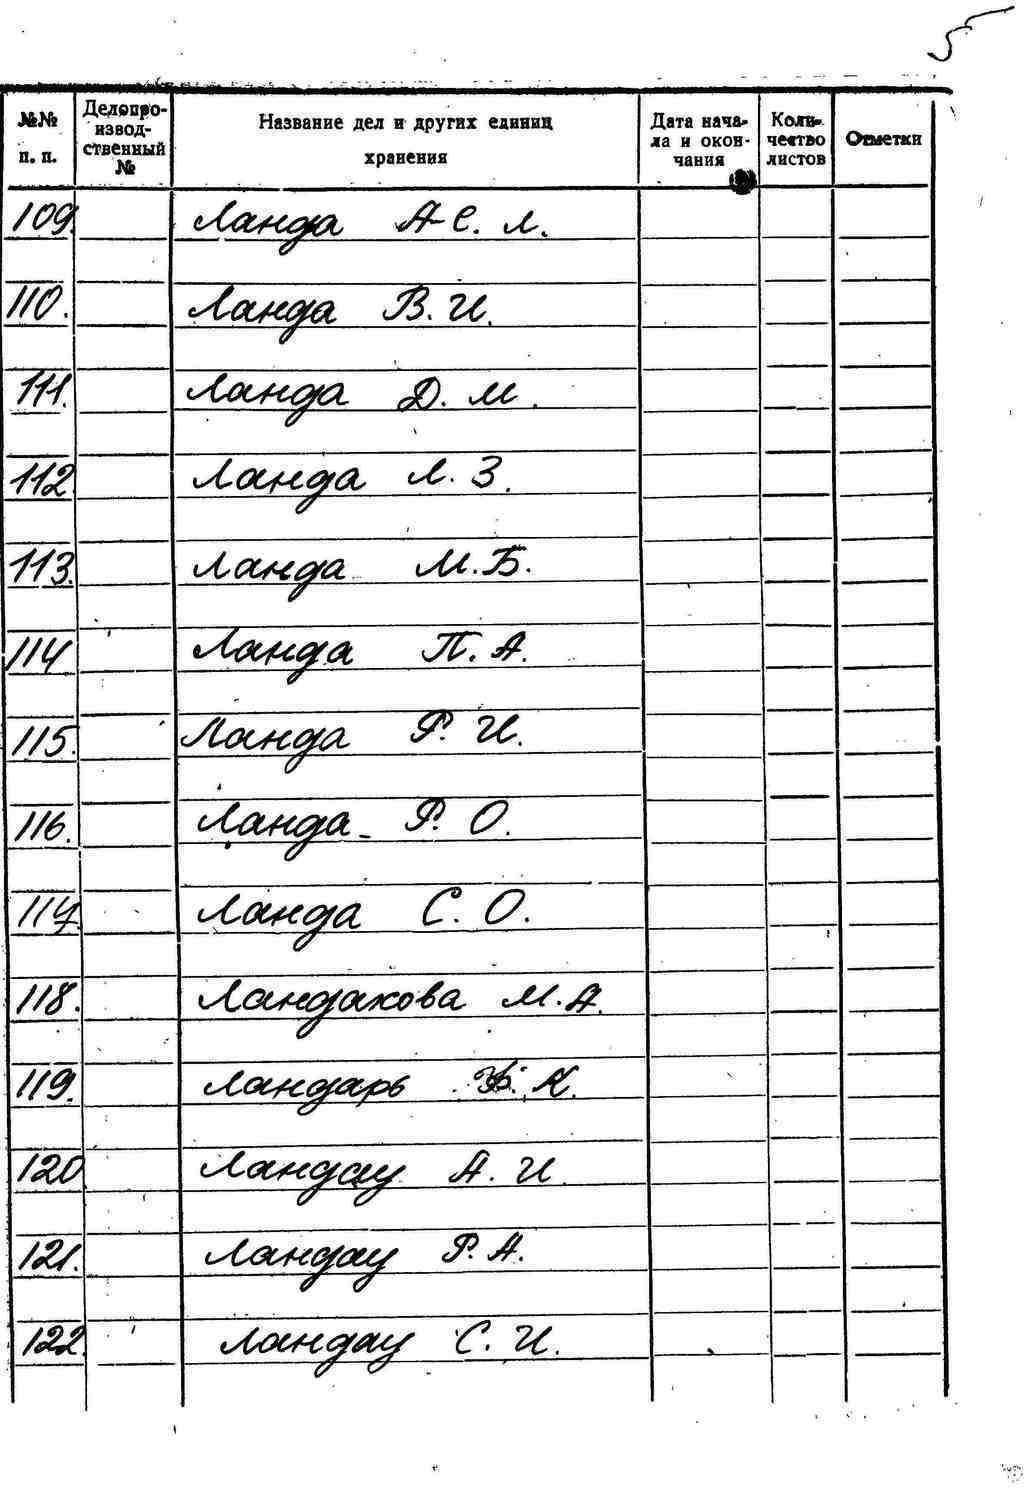 №№ п. п. Делопроизводственный № Название дел и других единиц хранения Дата начала и окончания Количество листов Отметки
109. Ланда А С. Л.
110. Ланда В. И.
111. Ланда Д. М.
112. Ланда Л. З.
113. Ланда М. Б.
114 Ланда П. А.
115. Ланда Р. И.
116. Ланда Р. О.
117. Ланда С. О.
118. Ландакова М. А.
119. Ландарь К.
120 Ландау А. И.
121. Ландау Р. А.
122. Ландау С. И.